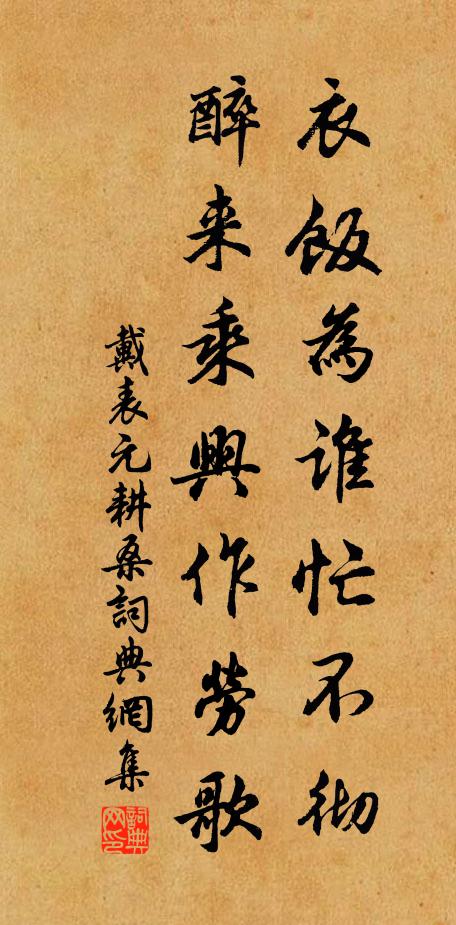 衣飯為誰忙不徹
醉来乘興作勞歌
戴表元耕桑詞典網集
詞典网印